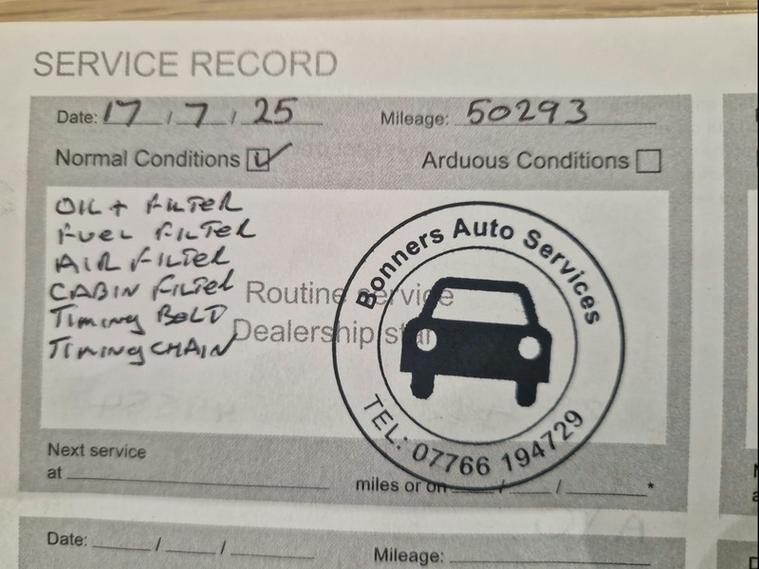 SERVICE RECORD
Date: 17 / 7 / 25 Mileage: 50293
Normal Conditions Arduous Conditions
OIL + FILTER
FUEL FILTER
AIR FILTER
CABIN FILTER
TIMING BOLD
TIMING CHAIN
Routine service
Dealership
Bonners Auto Services
TEL: 07766 194729
Next service
at miles or on / / *
Date: / / Mileage: